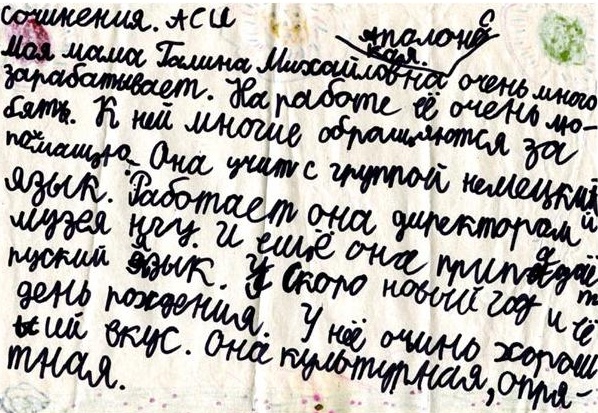 сочинения. АСИ
Аполонс
кая.
моя мама Галина Михайловна очень много
зарабатывает. На работе её очень лю-
бять. К ней многие обращяются за
помащью. Она учит с группой немецкий
язык. Работает она директорам
музея нгу. И ещё она припадаёт
руский язык. У Скоро новый год и её
день рождения. У неё очинь хорош
ий вкус. Она культурная, опря-
тная.